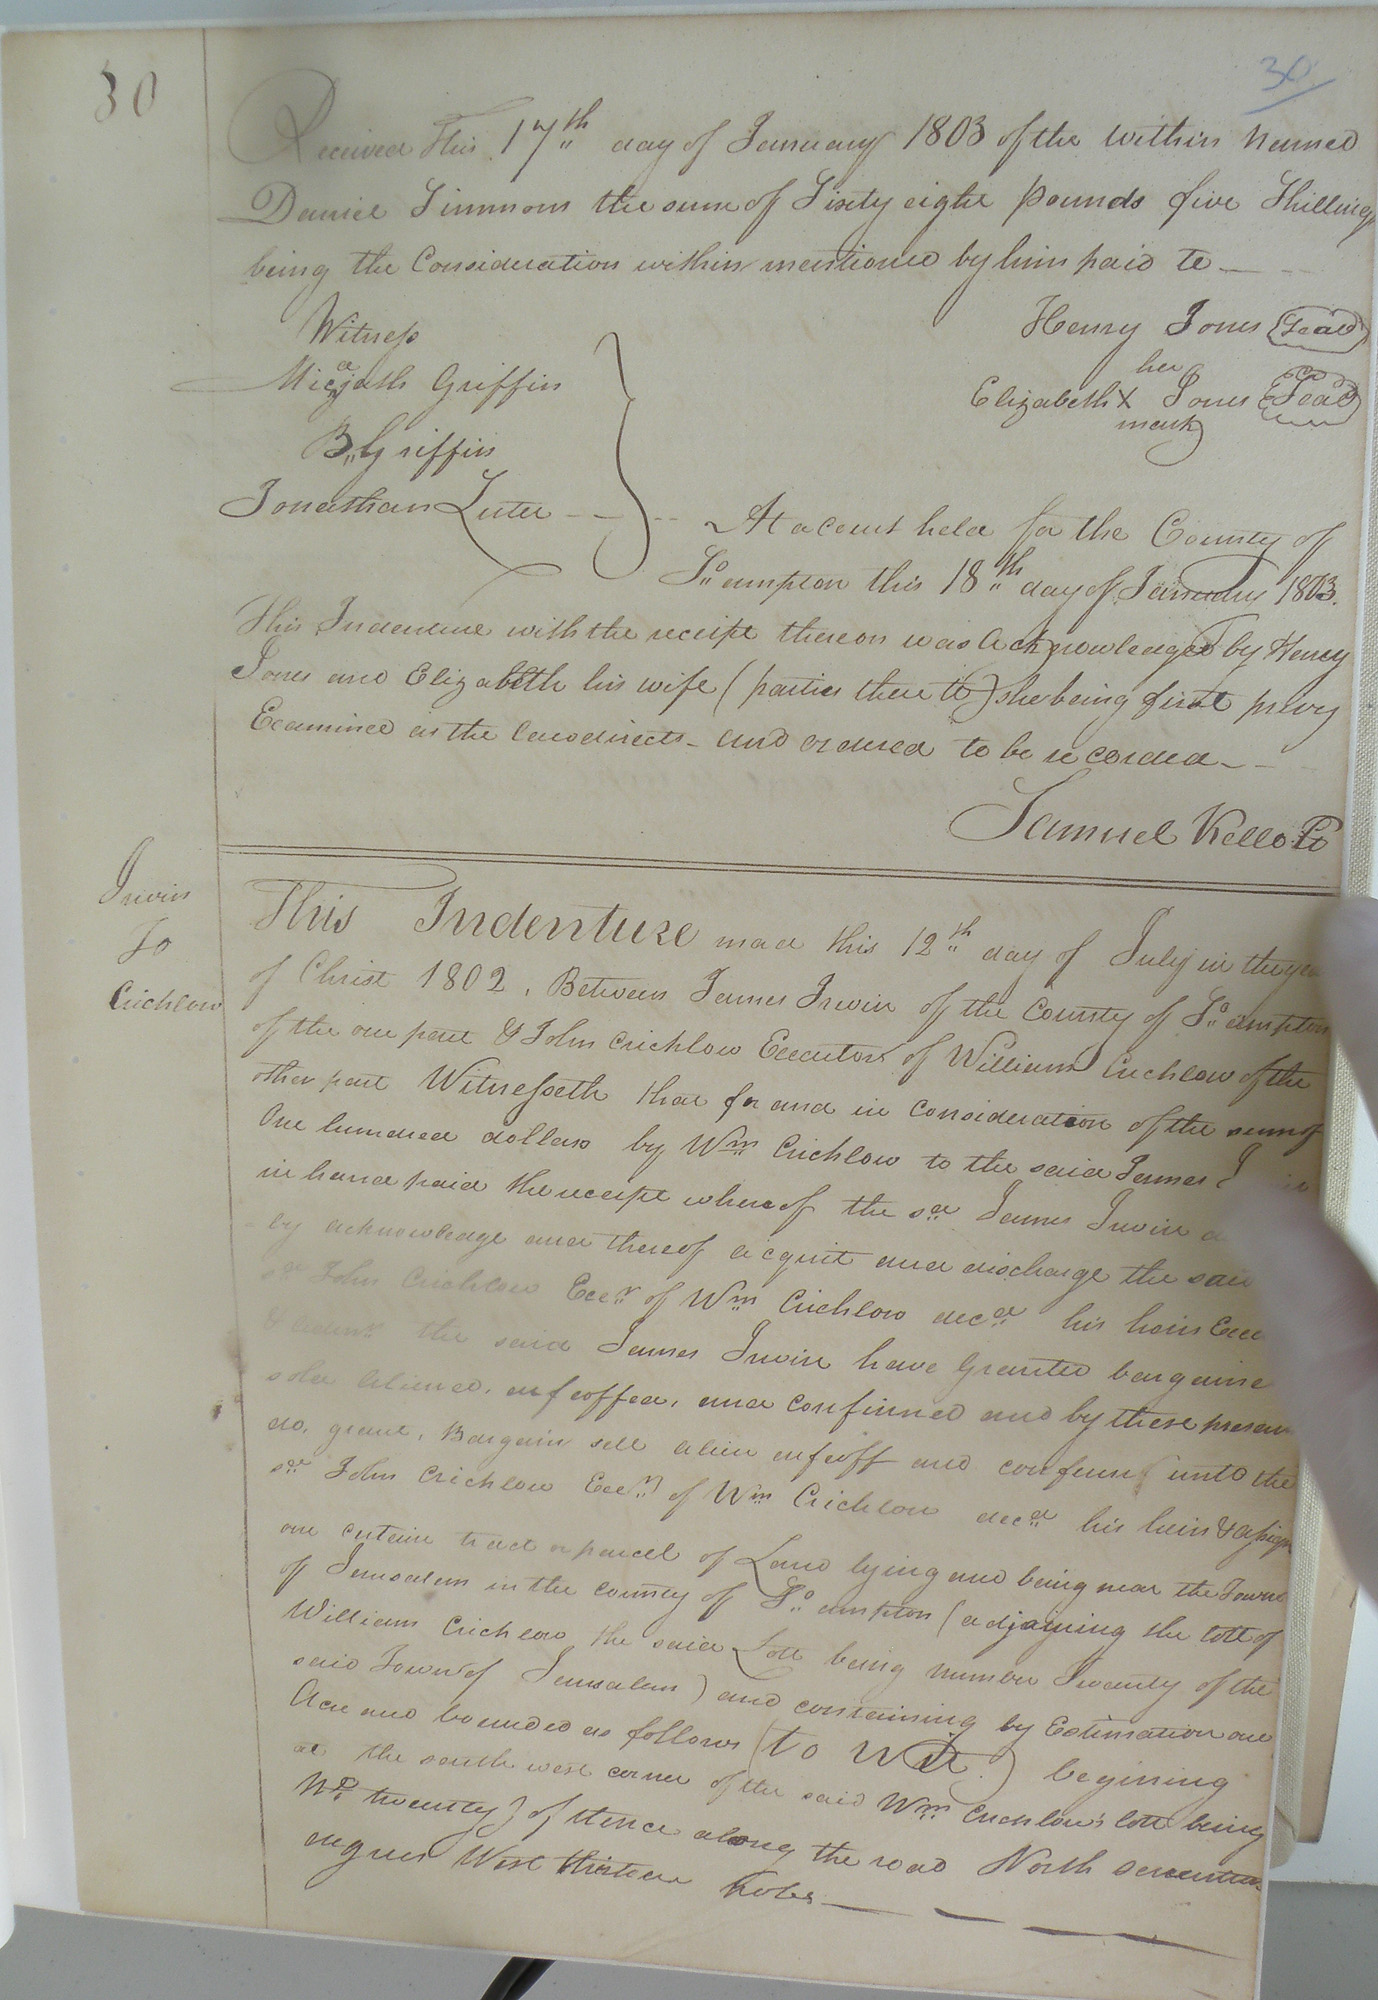 30
30
Received this 17th day of January 1803 of the within named
Daniel Simmons the sum of Sixty eight pounds five Shillings
being the Consideration within mentioned by him paid to
Witness
Henry Jones Seal
Micajah Griffin
her
Elizabeth X Jones Seal
mark
B. Griffin
Jonathan Luter
At a court held for the County of
So.ampton this 18th day of January 1803.
This Indenture with the receipt thereon was Acknowledged by Henry
Jones and Elizabeth his wife (parties there to) she being first privy
Examined as the law directs and ordered to be recorded
Samuel Kello
Irwin
To
Crichlow
This Indenture made this 12th day of July in the year
of Christ 1802, Between James Irwin of the County of So.ampton
of the one part & John Crichlow Executor of William Crichlow of the
other part Witnesseth that for and in Consideration of the sum of
One hundred dollars by Wm Crichlow to the said James
in hand paid the receipt whereof the sd James Irwin
by acknowledge and thereof acquit and discharge the said
sd John Crichlow Exer of Wm Crichlow decd his heirs
the said James Irwin have Granted
sold aliened, enfeoffed, and confirmed and by these presents
do, grant, Bargain sell alien enfeoff and confirm unto the
sd John Crichlow Exer of Wm Crichlow decd his heirs & assigns
one certain tract or parcel of Land lying and being near the Town
of Jerusalem in the county of So.ampton (adjoining the lott of
William Crichlow the said Lott being number Twenty of the
said Town of Jerusalem) and containing by Estimation one
Acre and bounded as follows (to Wit) begining
at the south west corner of the said Wm Crichlow's lott being
No. twenty) of thence along the road North seventeen
degrees West thirteen poles